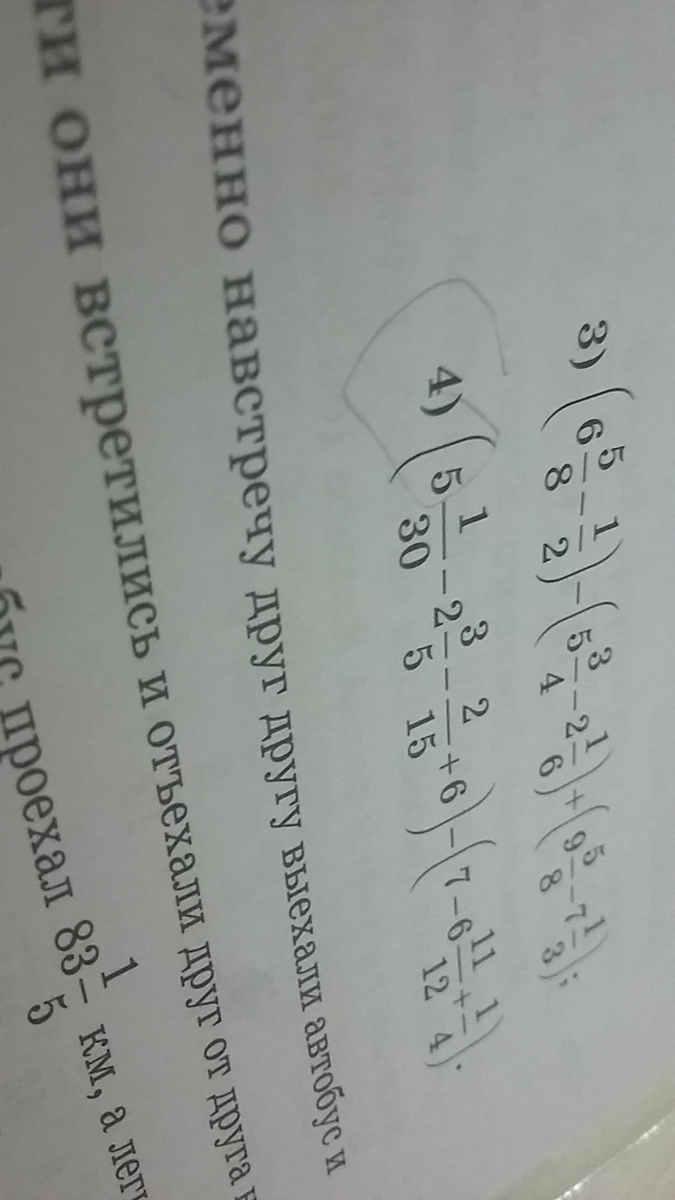 3) (6 5/8 − 1/2) − (5 3/4 − 2 1/6) + (9 5/8 − 7 1/3);
4) (5 1/30 − 2 3/5 − 2/15 + 6) − (7 − 6 11/12 + 1/4).
навстречу друг другу выехали автобус и
они встретились и отъехали друг от друга
проехал 83 1/5 км, а